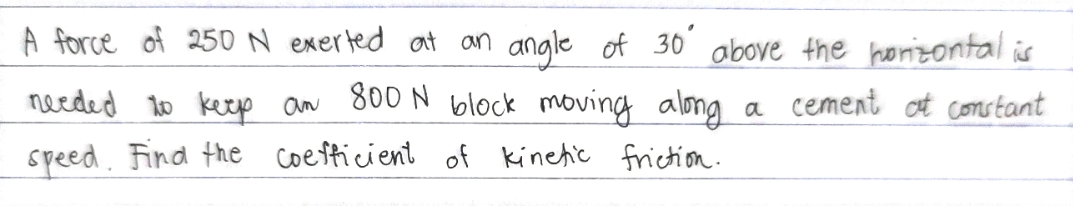 A force of 250 N exerted at an angle of 30° above the horizontal is
needed to keep an 800 N block moving along a cement at constant
speed. Find the coefficient of kinetic friction.